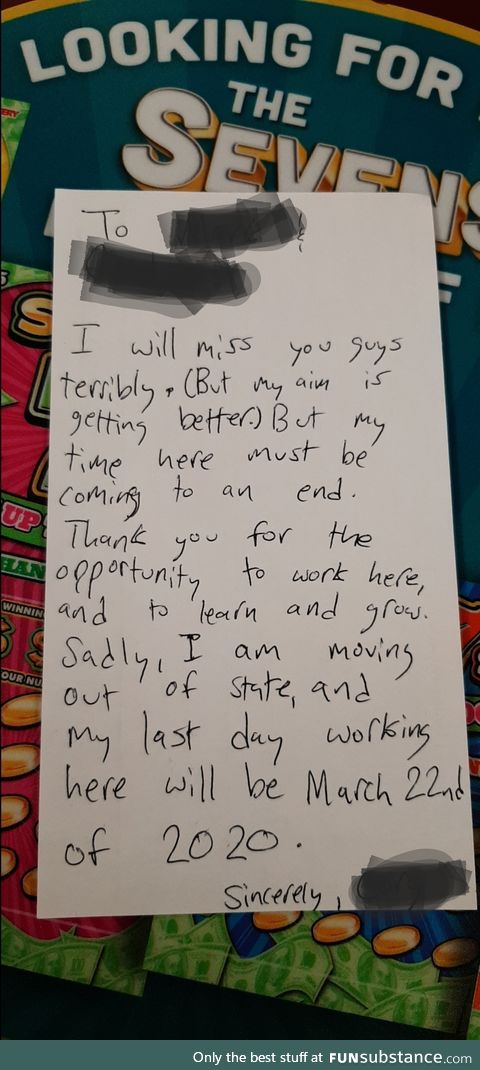 LOOKING FOR
THE
SEVENS
To &
I will miss you guys
terribly. (But my aim is
getting better.) But my
time here must be
coming to an end.
Thank you for the
opportunity to work here,
and to learn and grow.
Sadly, I am moving
out of state, and
my last day working
here will be March 22nd
of 2020.
Sincerely,
UP
WINNIN
OUR NU
Only the best stuff at FUNsubstance.com